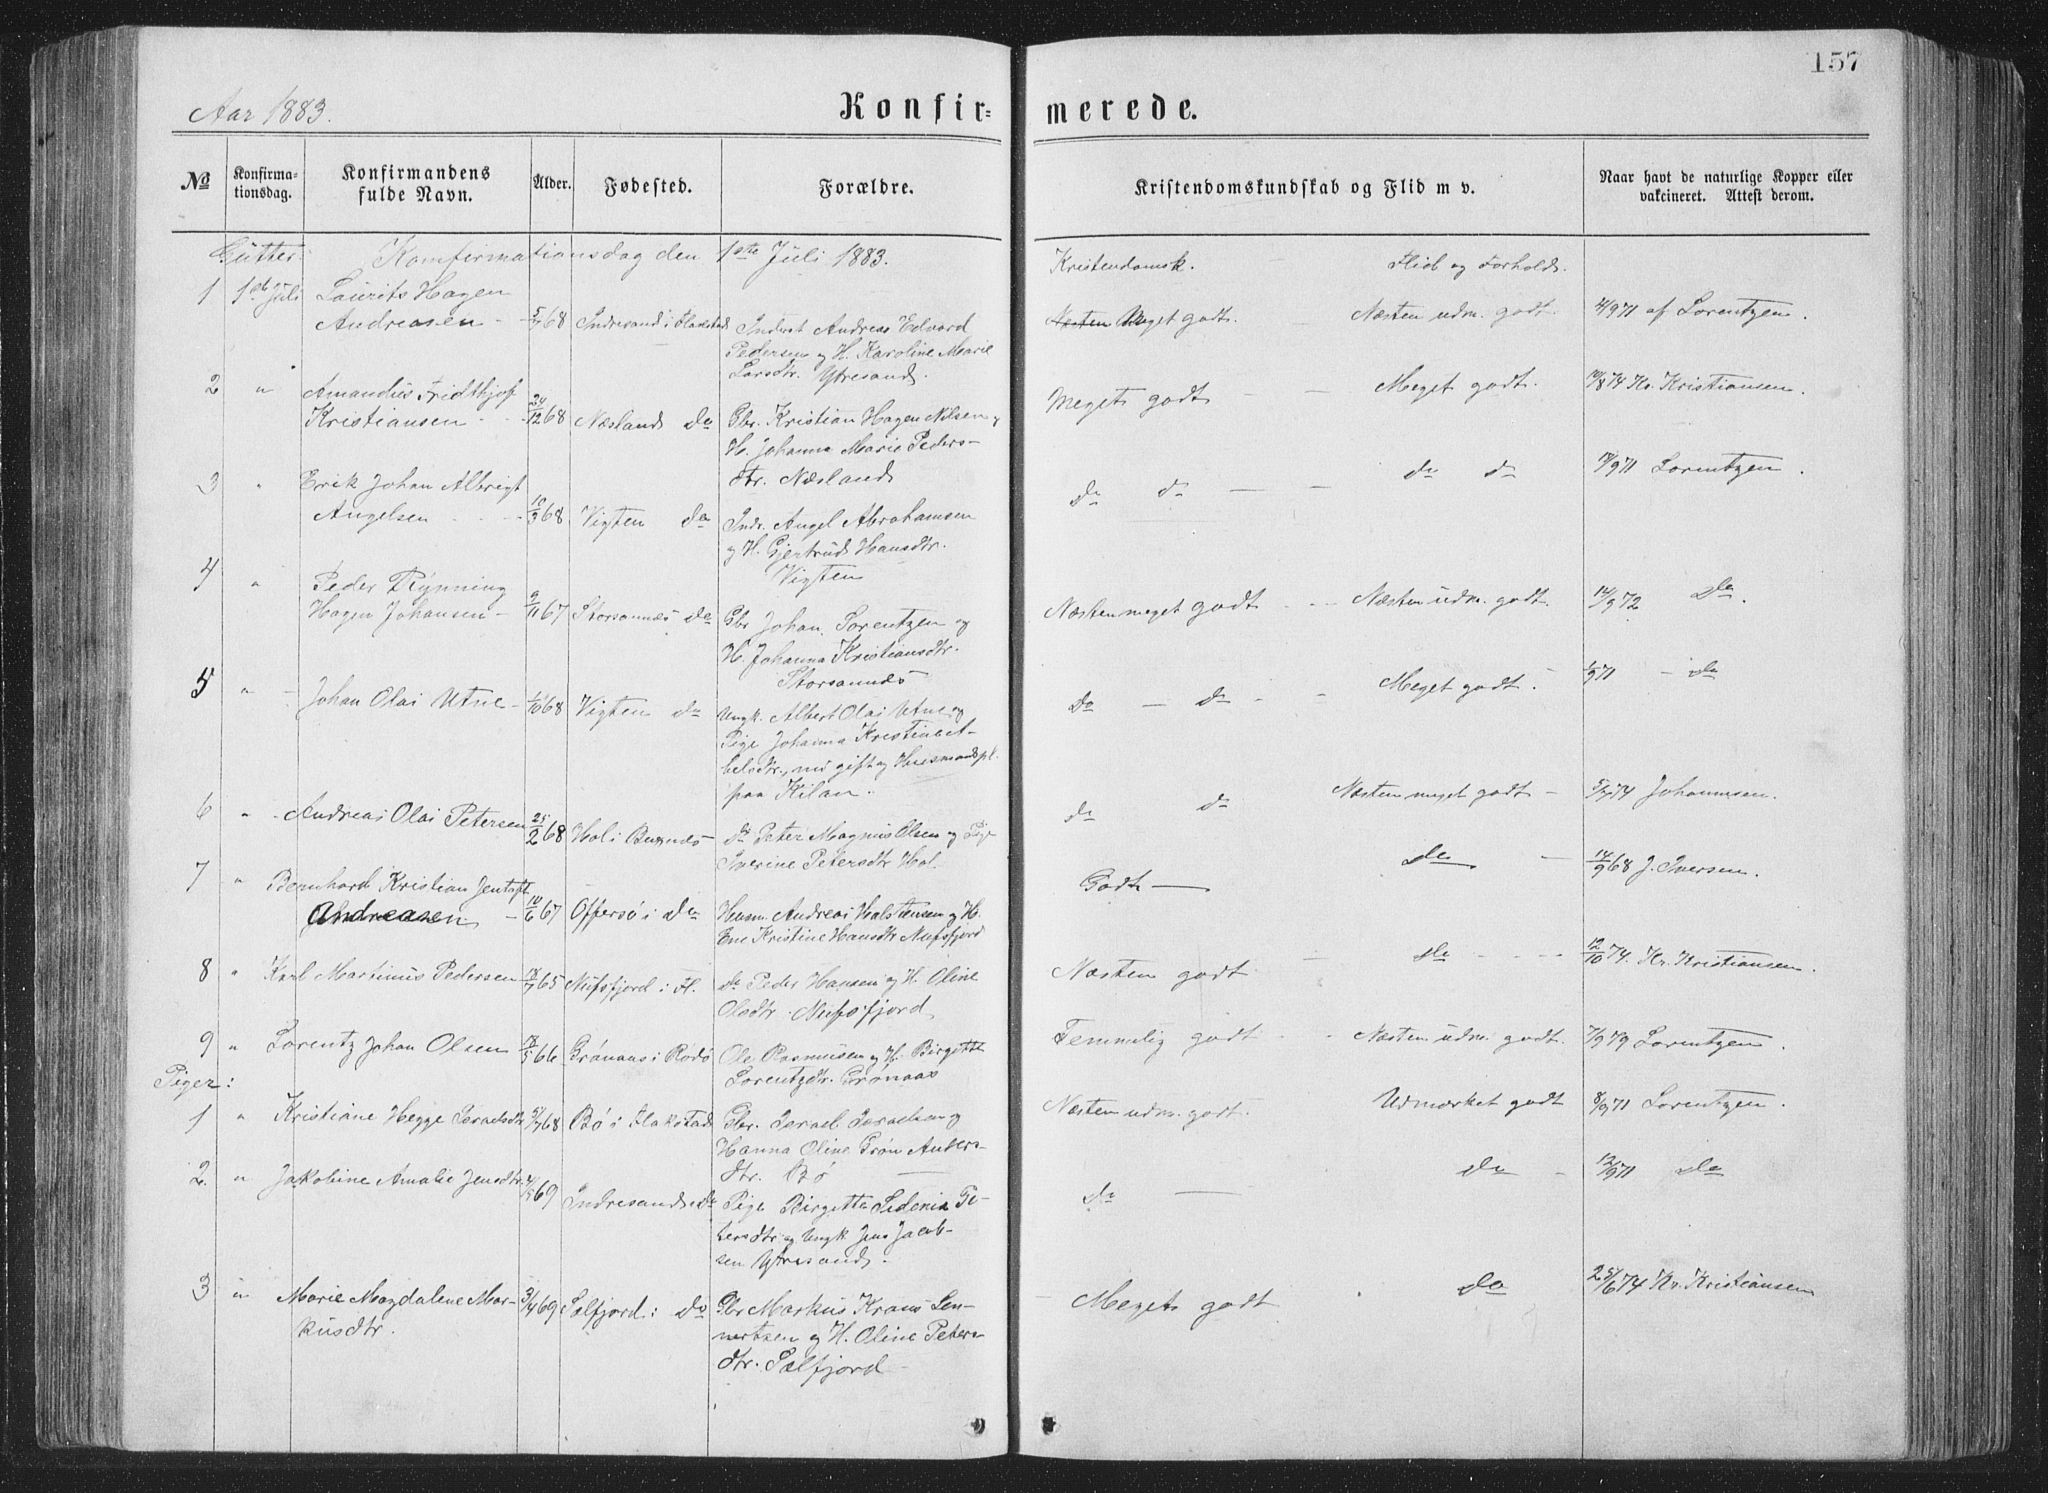 157
Aar 1883.
Konfir=
merede.
No
Konfirma-
tionsdag.
Konfirmandens
fulde Navn.
Alder.
Fødested.
Forældre.
Kristendomskundskab og Flid m v.
Naar havt de naturlige Kopper eller
vakcineret. Attest derom.
Gutter: Konfirmationsdag den 1ste Juli 1883.
Kristendomsk. Flid og Forhold.
1 1ste Juli Laurits Hagen
Andreasen - 5/7 68 Indresand i Flakstad Inderst Andreas Edvard
Pedersen og H. Karoline Marie
Larsdtr. Ytresand.
Næsten Meget godt. Næsten udm. godt. 4/9 71 af Lorentzen.
2 " Amandus Fridthjof
Kristiansen 24/12 68 Næsland do Gbr. Kristian Hagen Nilsen og
H. Johanna Marie Peders-
dtr. Næsland
Meget godt - Meget godt. 10/8 74 Kr. Kristiansen.
3 " Erik Johan Albrigt
Angelsen 10/9 68 Vigten do Indr. Angel Abrahamsen
og H. Gjertrud Hansdtr.
Vigten
do do - - do do 17/9 71 Lorentzen.
4 " Peder Rynning
Hagen Johansen - 9/11 67 Storsannæs do Gbr Johan Lorentzen og
H. Johanna Kristiansdtr.
Storsannæs
Næsten meget godt - Næsten udm. godt. 14/9 72 Do.
5 " Johan Olai Utne - 1/10 68 Vigten do Ungk. Albert Olai Utne og
Pige Johanna Kristine A-
belsdtr., nu gift og Husmandspl.
paa Kilan.
Do - do - - Meget godt. 1/9 71 - do
6 " Andreas Olai Petersen 25/2 68 Hol i Buxnæs do Peter Magnus Olsen og Pige
Iverine Petersdtr Hol
do do Næsten meget godt - 5/7 74 Johannsen.
7 " Bernhard Kristian Jentoft
Andreasen - 10/6 67 Offersø i do Husm. Andreas Halstensen og H.
Ene Kristine Hansdtr Nufsfjord
Godt - do - 14/9 68 J. Iversen.
8 " Karl Martinus Pedersen 18/7 65 Nufsfjord i Fl. do Peder Hansen og H. Oline
Olsdtr. Nufsfjord
Næsten godt - do 12/10 74. Kr. Kristiansen.
9 " Lorentz Johan Olsen 18/5 66 Grønaas i Rødø Ole Rasmussen og H. Birgitte
Lorentzdtr. Grønaas
Temmelig godt Næsten udm. godt. 7/9 79 Lorentzen.
Piger:
1 " Kristiane Hegge Israelsdtr 5/7 68 Bø i Flakstad Gbr. Israel Israelsen og
Hanna Oline Grøn Anders-
dtr. Bø
Næsten udm. godt. Udmærket godt 8/9 71 Lorentzen.
2. " Jakobine Amalie Jensdtr. 4/5 69 Indresand i do Pige Birgitte Sidenia Pe-
tersdtr og Ungk Jens Jacob-
sen Ytresand.
do - do - 12/9 71 do
3 " Marie Magdalene Mar-
kusdtr. 3/4 69 Sælfjord i do Gbr Markus Krans Len-
nertsen og H. Oline Peters
dtr. Sælfjord
Meget godt do 25/6 74 Kr. Kristiansen